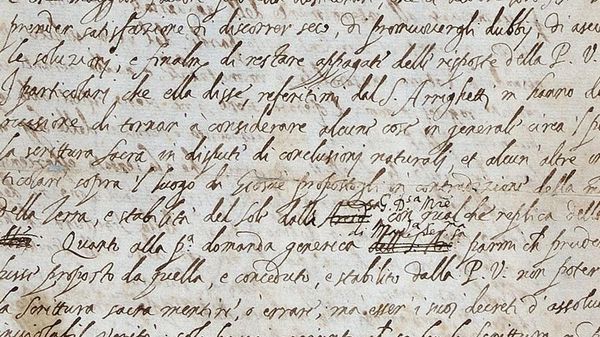 prender satisfazione di discorrer seco, di promuovergli dubbj, di asc
le soluzioni, e finalm. di restare appagati delle risposte della P. V.
I particolari, che ella disse, referitimi dal S. Arrighetti m hanno da
occasione di tornar' à considerare alcune cose in generale circa 'l
la scrittura sacra in dispute di conclusioni naturali, et alcun' altre in
ticolari sopra 'l luogo di Giosuè propostogli in contradizione della
della Terra, e stabilità del Sole dalla G. D.sa M.re con qualche replica della
Quanto alla p.a domanda generica di Mad.a Ser.ma parmi ch prude
fusse proposto da quella, e conceduto, e stabilito dalla P. V. non poter
la scrittura sacra mentire, ò errare, ma esser' i suoi decreti d' assolu